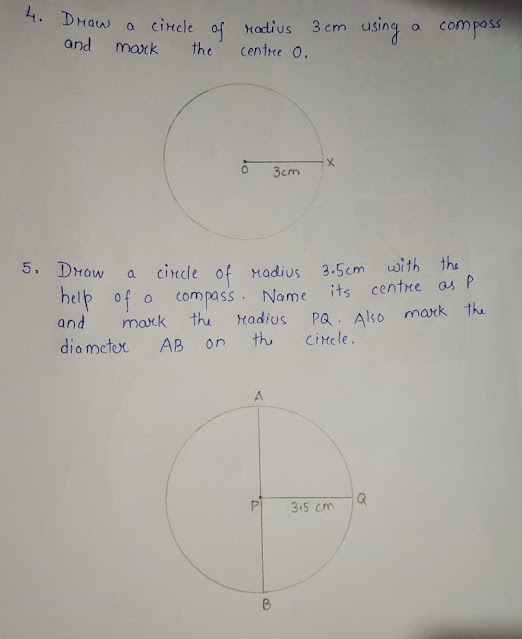 4. Draw a circle of radius 3cm using a compass
and mark the centre O.
O 3cm X
5. Draw a circle of radius 3.5cm with the
help of a compass. Name its centre as P
and mark the radius PQ. Also mark the
diameter AB on the circle.
A
P 3.5 cm Q
B